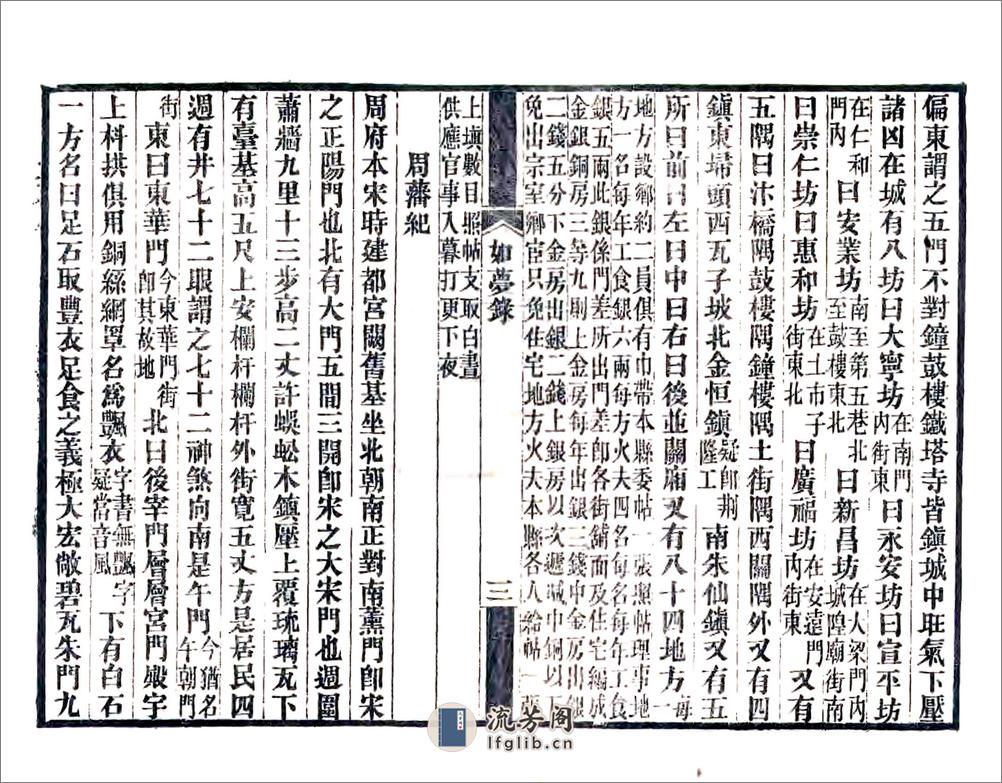 偏東謂之五門不對鐘鼓樓鐵塔寺皆鎮城中旺氣下壓
諸凶在城有八坊曰大寧坊在南門內街東曰永安坊曰宣平坊
在仁和門內曰安業坊南至第五巷北至鼓樓東北曰新昌坊在大梁門內城隍廟街南
曰崇仁坊曰惠和坊在土市子街東北曰廣福坊在安遠門內街東又有
五隅曰汴橋隅鼓樓隅鐘樓隅土街隅西關隅外又有四
鎮東埽頭西瓦子坡北金恒鎮疑即荆隆工南朱仙鎮又有五
所曰前曰左曰中曰右曰後並關廂又有八十四地方每
地方設鄉約二員俱有巾帶本縣委帖一張照帖理事地
方一名每年工食銀六兩每方火夫四名每名每年工食
銀五兩此銀係門差所出門差即各街舖面及住宅編成
金銀銅房三等九則上金房每年出銀三錢中金房出銀
二錢五分下金房出銀二錢上銀房以次遞減中銅以下
免出宗室鄉宦只免住宅地方火夫本縣各人給帖一張
上塡數目照帖支取白晝
供應官事入暮打更下夜
周藩紀
周府本宋時建都宮闕舊基坐北朝南正對南薰門即宋
之正陽門也北有大門五間三開即宋之大宋門也週圍
蕭牆九里十三步高二丈許蜈蚣木鎮壓上覆琉璃瓦下
有臺基高五尺上安欄杆欄杆外街寬五丈方是居民四
週有井七十二眼謂之七十二神煞向南是午門今猶名午朝門
街東曰東華門今東華門街即其故地北曰後宰門層層宮門殿宇
上枓拱俱用銅絲網罩名爲飄衣字書無飄字疑當音風下有白石
一方名曰足石取豐衣足食之義極大宏敞碧瓦朱門九
如夢錄
三
流芳阁
lfglib.cn